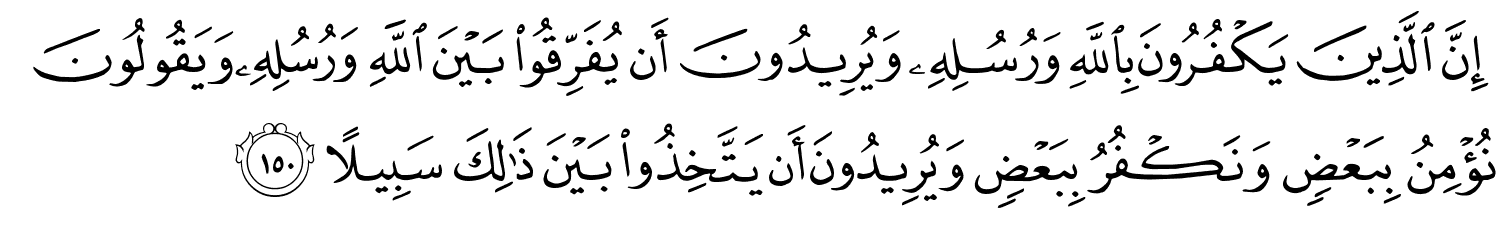 إِنَّ ٱلَّذِينَ يَكۡفُرُونَ بِٱللَّهِ وَرُسُلِهِۦ وَيُرِيدُونَ أَن يُفَرِّقُواْ بَيۡنَ ٱللَّهِ وَرُسُلِهِۦ وَيَقُولُونَ
نُؤۡمِنُ بِبَعۡضٖ وَنَكۡفُرُ بِبَعۡضٖ وَيُرِيدُونَ أَن يَتَّخِذُواْ بَيۡنَ ذَٰلِكَ سَبِيلًا ١٥٠